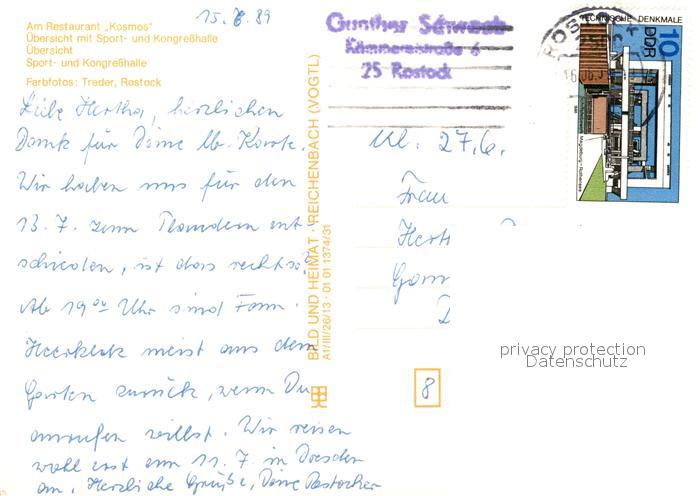 15. 6. 89
Am Restaurant „Kosmos"
Übersicht mit Sport- und Kongreßhalle
Übersicht
Sport- und Kongreßhalle
Farbfotos: Treder, Rostock
Liebe Hertha, herzlichen
Dank für Deine lb. Karte.
Wir haben uns für den
13. 7. zum Plaudern ent-
schieden, ist das recht so?
Ab 19⁰⁰ Uhr sind Fam.
meist aus dem
Garten zurück, wenn Du
anrufen willst. Wir reisen
wohl erst am 11. 7. in Dresden
an. Herzliche Grüße, Deine Rostocker
BILD UND HEIMAT · REICHENBACH (VOGTL)
A1/III/26/13 · 01 01 1374/31
Gunther
Kämmereistraße 6
25 Rostock
ROSTOCK
TECHNISCHE DENKMALE
DDR
10
Magdeburg-Rothensee
27.6.
Frau
Hert
8
privacy protection
Datenschutz